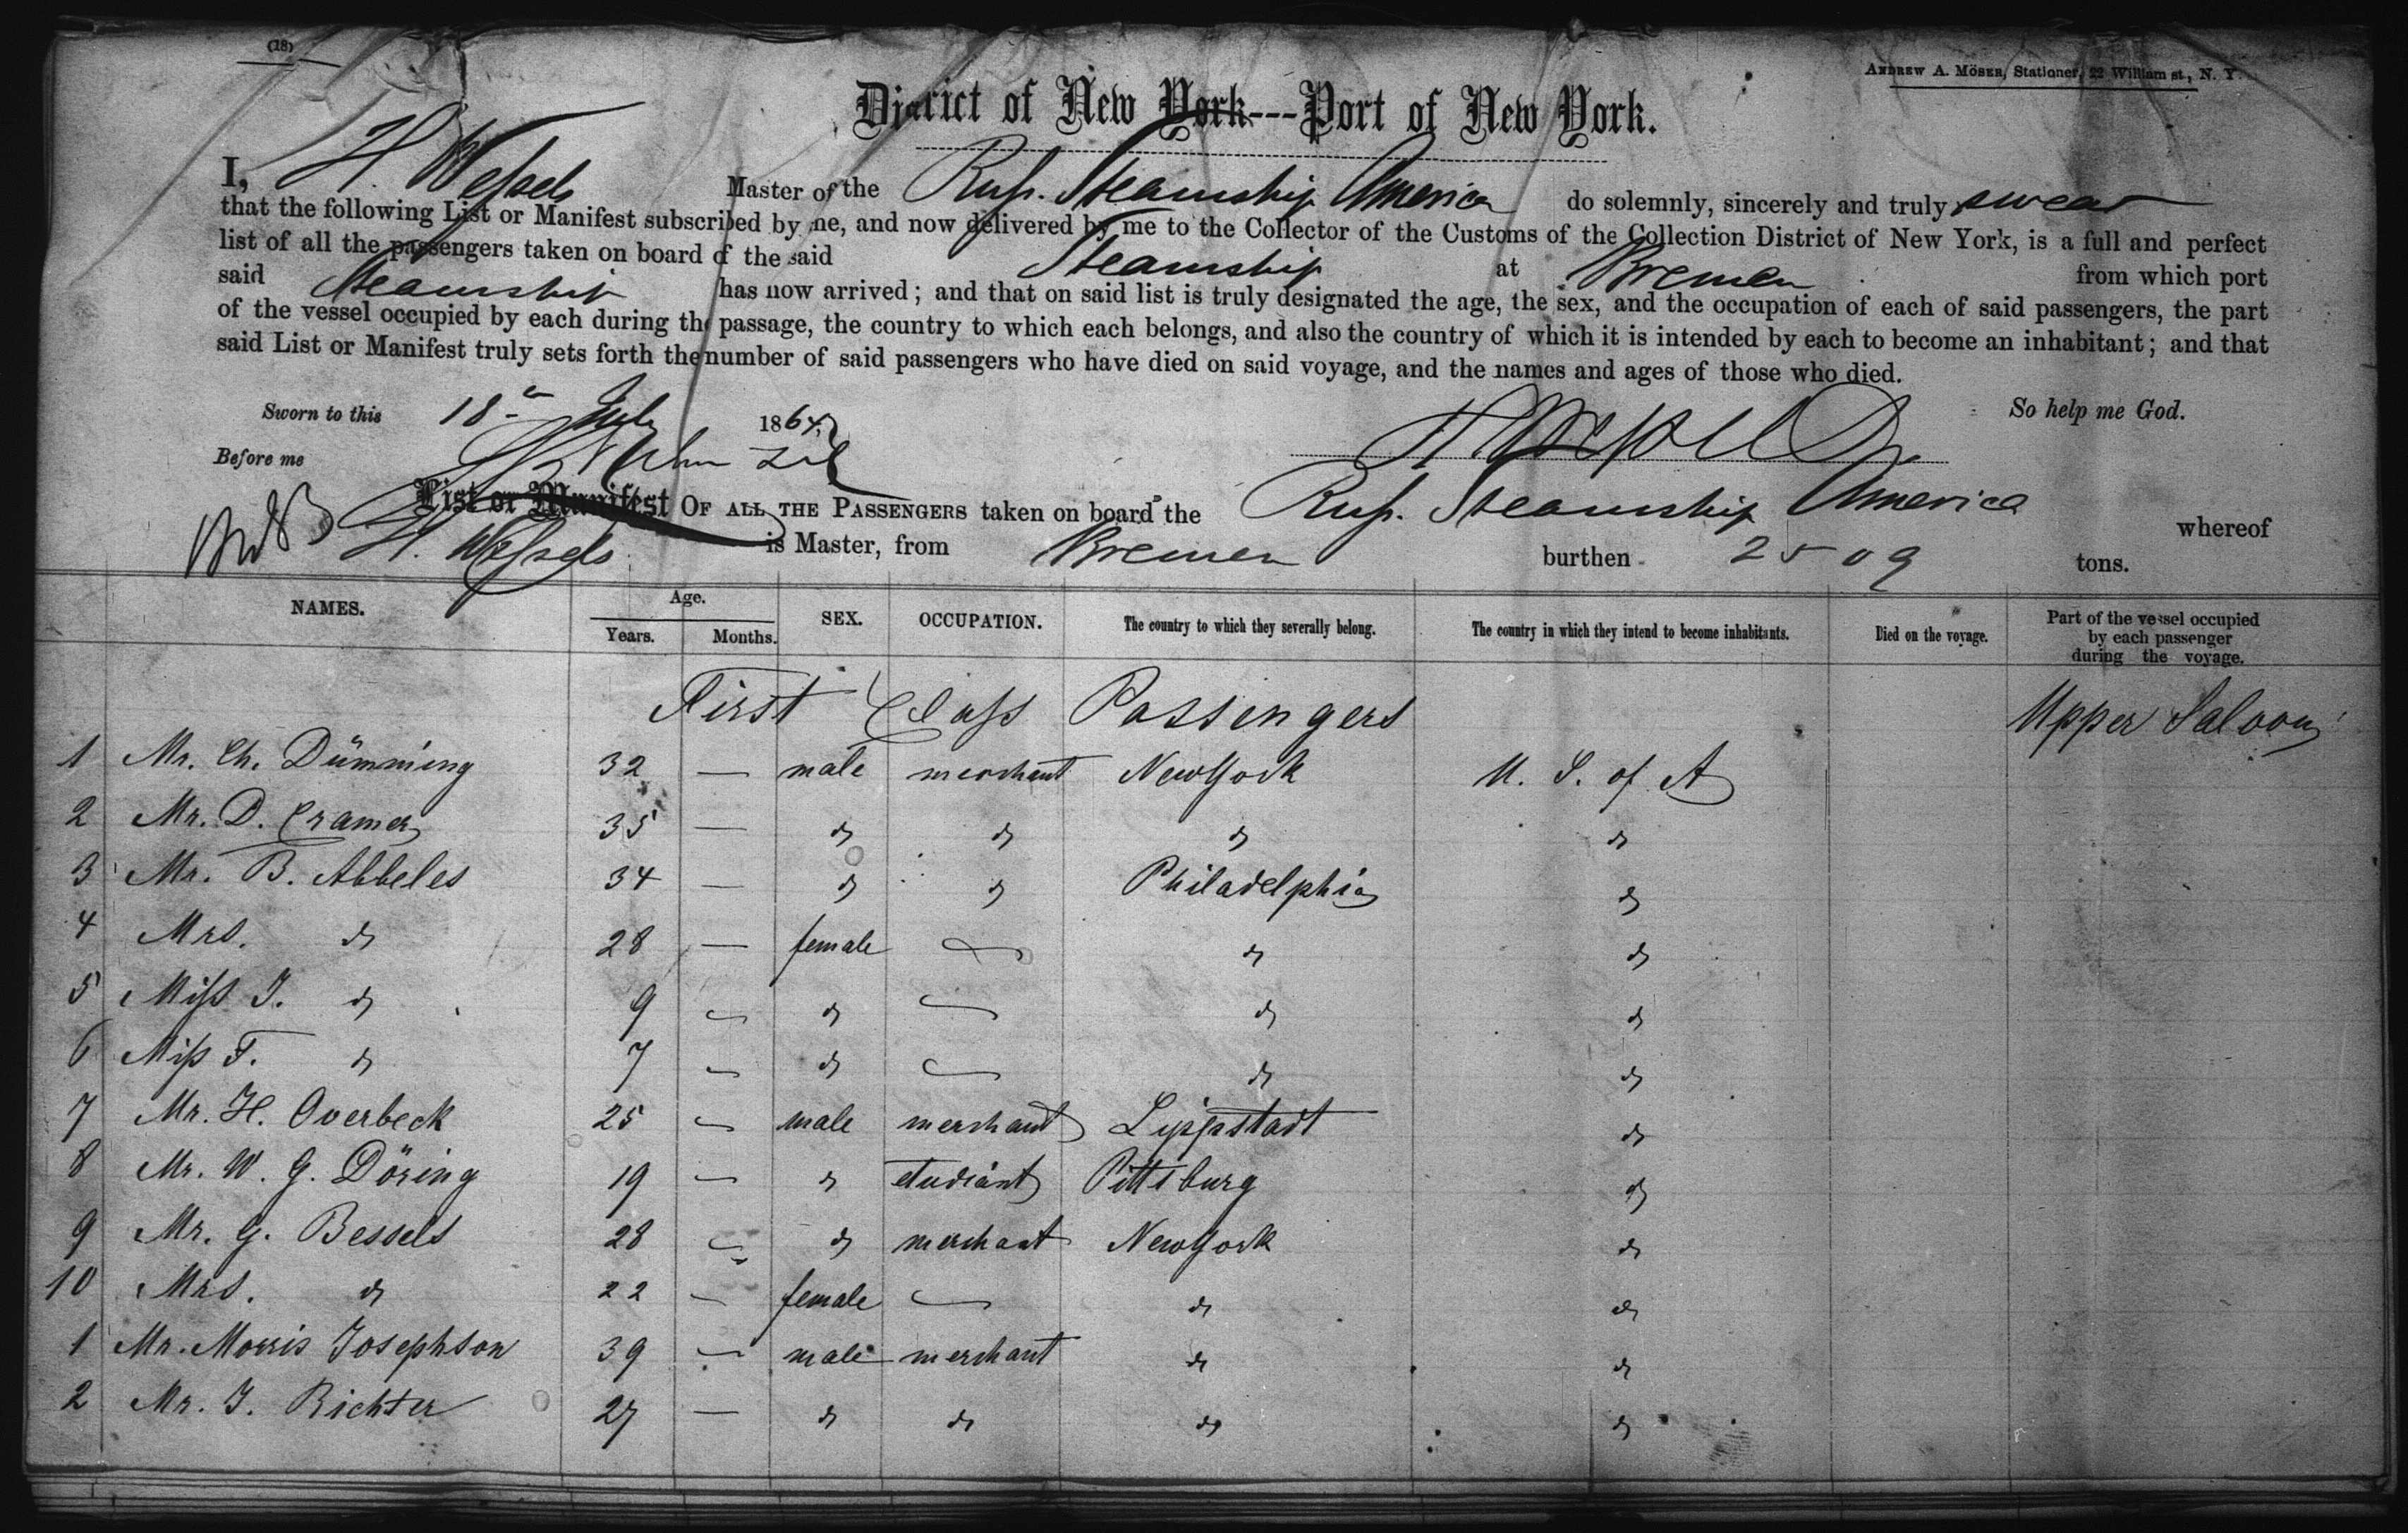 (18)
ANDREW A. MÖSER, Stationer, 22 William st., N. Y.
District of New York---Port of New York.
I, H. Wessels Master of the Russ. Steamship America do solemnly, sincerely and truly swear
that the following List or Manifest subscribed by me, and now delivered by me to the Collector of the Customs of the Collection District of New York, is a full and perfect
list of all the passengers taken on board of the said Steamship at Bremen from which port
said Steamship has now arrived; and that on said list is truly designated the age, the sex, and the occupation of each of said passengers, the part
of the vessel occupied by each during the passage, the country to which each belongs, and also the country of which it is intended by each to become an inhabitant; and that
said List or Manifest truly sets forth the number of said passengers who have died on said voyage, and the names and ages of those who died.
Sworn to this 18 July 1864 So help me God.
Before me H Wessels
List or Manifest OF ALL THE PASSENGERS taken on board the Russ. Steamship America whereof
H. Wessels is Master, from Bremen burthen 2509 tons.
NAMES. Age. Years. Months. SEX. OCCUPATION. The country to which they severally belong. The country in which they intend to become inhabitants. Died on the voyage. Part of the vessel occupied by each passenger during the voyage.
First Class Passengers Upper Saloon
1 Mr. Ch. Dümming 32 — male merchant New York U. S. of A
2 Mr. D. Cramer 35 — do do do do
3 Mr. B. Abbeles 34 — do do Philadelphia do
4 Mrs. do 28 — female — do do
5 Miss J. do 9 — do — do do
6 Miss F. do 7 — do — do do
7 Mr. H. Overbeck 25 — male merchant Lippstadt do
8 Mr. W. G. Döring 19 — do etudiant Pittsburg do
9 Mr. G. Bessels 28 — do merchant New York do
10 Mrs. do 22 — female — do do
1 Mr. Morris Josephson 39 — male merchant do do
2 Mr. J. Richter 27 — do do do do